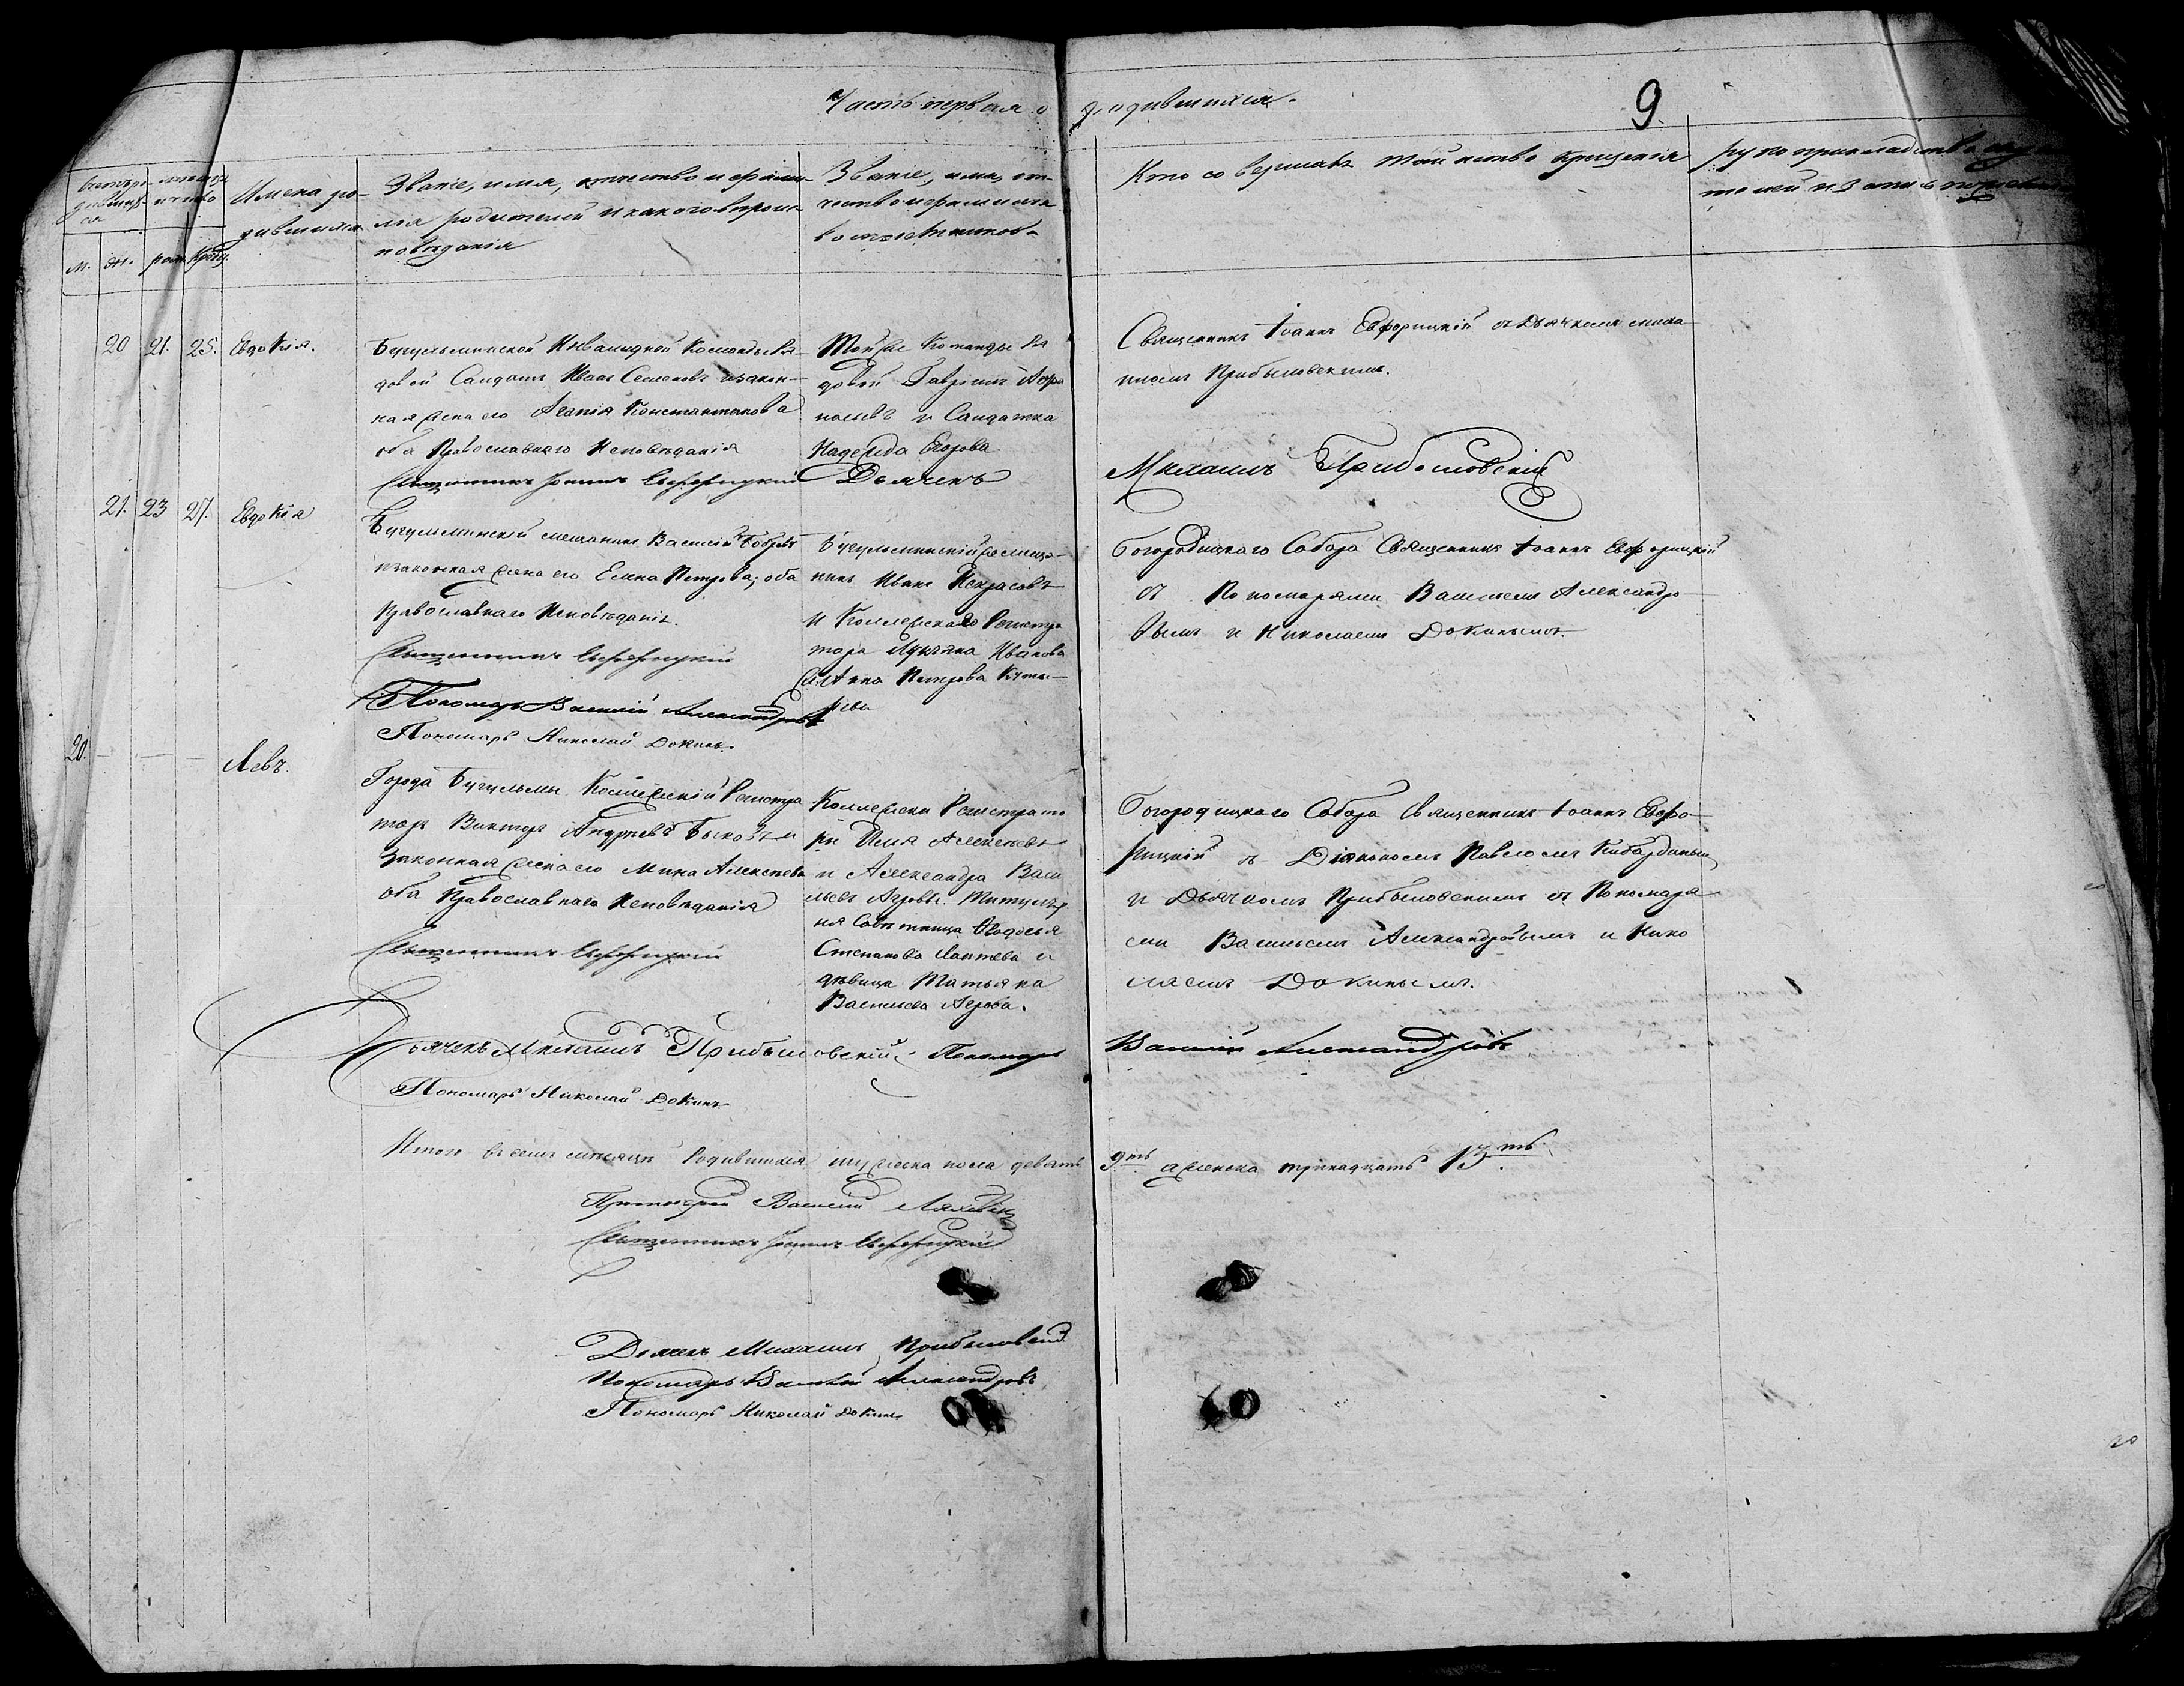 Часть первая о родившихся.
9.
Имена ро-
дившихся
Званіе, имя, отчество и фами-
лія родителей и какого вѣроис-
повѣданія
Званіе, имя, от-
чество и фамилія
воспріемниковъ
Кто совершалъ таинство крещенія
рукоприкладство
м. ж. рож. крещ.
20 21. 25. Евдокія.
Бугульминской Инвалидной Команды Ря-
довой Солдатъ Иванъ Семеновъ и закон-
ная жена его Агапія Константинова
оба Православнаго Исповѣданія
Священникъ Іоаннъ Евфорицкій
Той же Команды Ря
довой Гавріилъ
и Салдатка
Надежда Егорова
Священникъ Іоаннъ Евфорицкій съ Дьячкомъ Миха
иломъ Прибыловскимъ.
Дьячекъ Михаилъ Прибыловскій
21. 23 27. Евдокія
Бугульминскій мещанинъ Василій Бобровъ
и законная жена его Елена Петрова, оба
Православнаго Исповѣданія.
Священникъ Евфорицкій
Пономарь Василій Александровъ
Пономарь Николай Докинъ.
Бугульминскій же меща-
нинъ Иванъ Некрасовъ
и Коллежскаго Регистра
тора Ивакова
Анна Петрова
Богородицкаго Собора Священникъ Іоаннъ Евфорицкій
съ Пономарями Васильемъ Александро
вымъ и Николаемъ Докинымъ.
20. Левъ.
Города Бугульмы Коллежскій Регистра
торъ Викторъ Андреевъ Быковъ и
законная жена его Алексеева
оба Православнаго Исповѣданія
Священникъ Евфорицкій
Коллежски Регистрато
ри Илія Алексеевъ
и Александра Васи
льевъ Титуляр
ня Совѣтница Ѳеодосія
Степанова Лаптева и
дѣвица Татьяна
Васильева
Богородицкаго Собора Священникъ Іоаннъ Евфо-
рицкій съ Діякономъ Павломъ Кибардинымъ,
и Дьячкомъ Прибыловскимъ съ Пономаря
ми Васильемъ Александровымъ и Нико
лаемъ Докинымъ.
Дьячекъ Михаилъ Прибыловскій. Пономарь Василій Александровъ
Пономарь Николай Докинъ
Итого въ семъ мѣсяцѣ Родившихся мужеска пола девять 9ть. а женска тринадцать 13ть.
Протоіерей Василій
Священникъ Іоаннъ Евфорицкій
Дьячекъ Михаилъ Прибыловскій
Пономарь Василій Александровъ
Пономарь Николай Докинъ